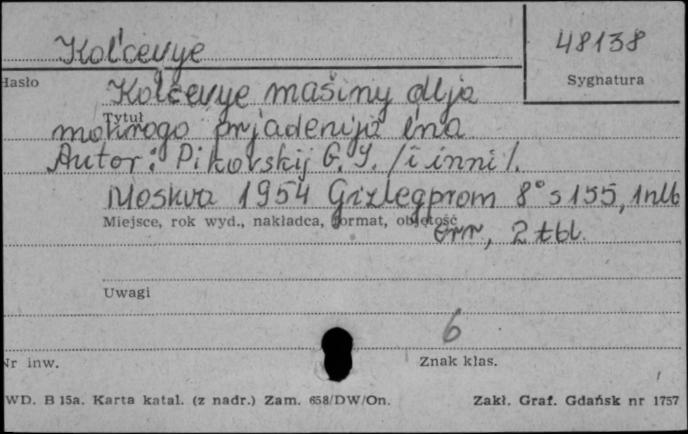 Kol'cevye
48138
Hasło
Sygnatura
Kol'cevye mašiny dlja
Tytuł
mokrogo prjadenija l'na
Autor: Pikovskij G. I. /i inni/.
Moskva 1954 Gizlegprom 8° s 155, 1nlb
Miejsce, rok wyd., nakładca, format, objętość
err, 2 tbl.
Uwagi
6
Nr inw.
Znak klas.
WD. B 15a. Karta katal. (z nadr.) Zam. 658/DW/On.
Zakł. Graf. Gdańsk nr 1757